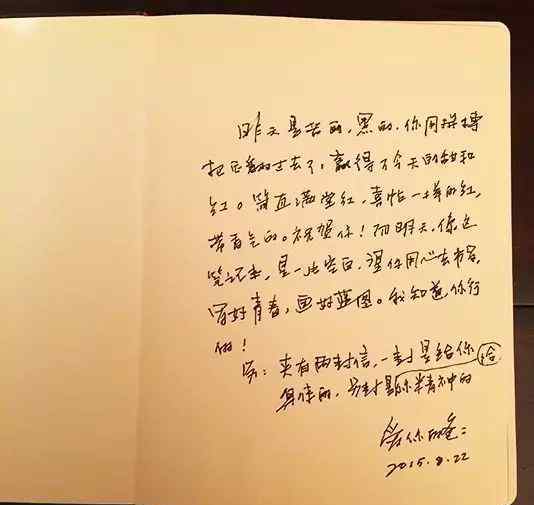 昨天是苦的，黑的，你用拼搏
把它翻过去了，赢得了今天的甜和
红。简直满堂红，喜帖一样的红，
带着笑的。祝贺你！而明天，像这
笔记本，是一片空白，望你用心去书写，
写好青春，画好蓝图。我知道，你行
的！
另：夹有两封信，一封是给你
身体的，另封是给你精神的
爱你的爸：
2015.8.22